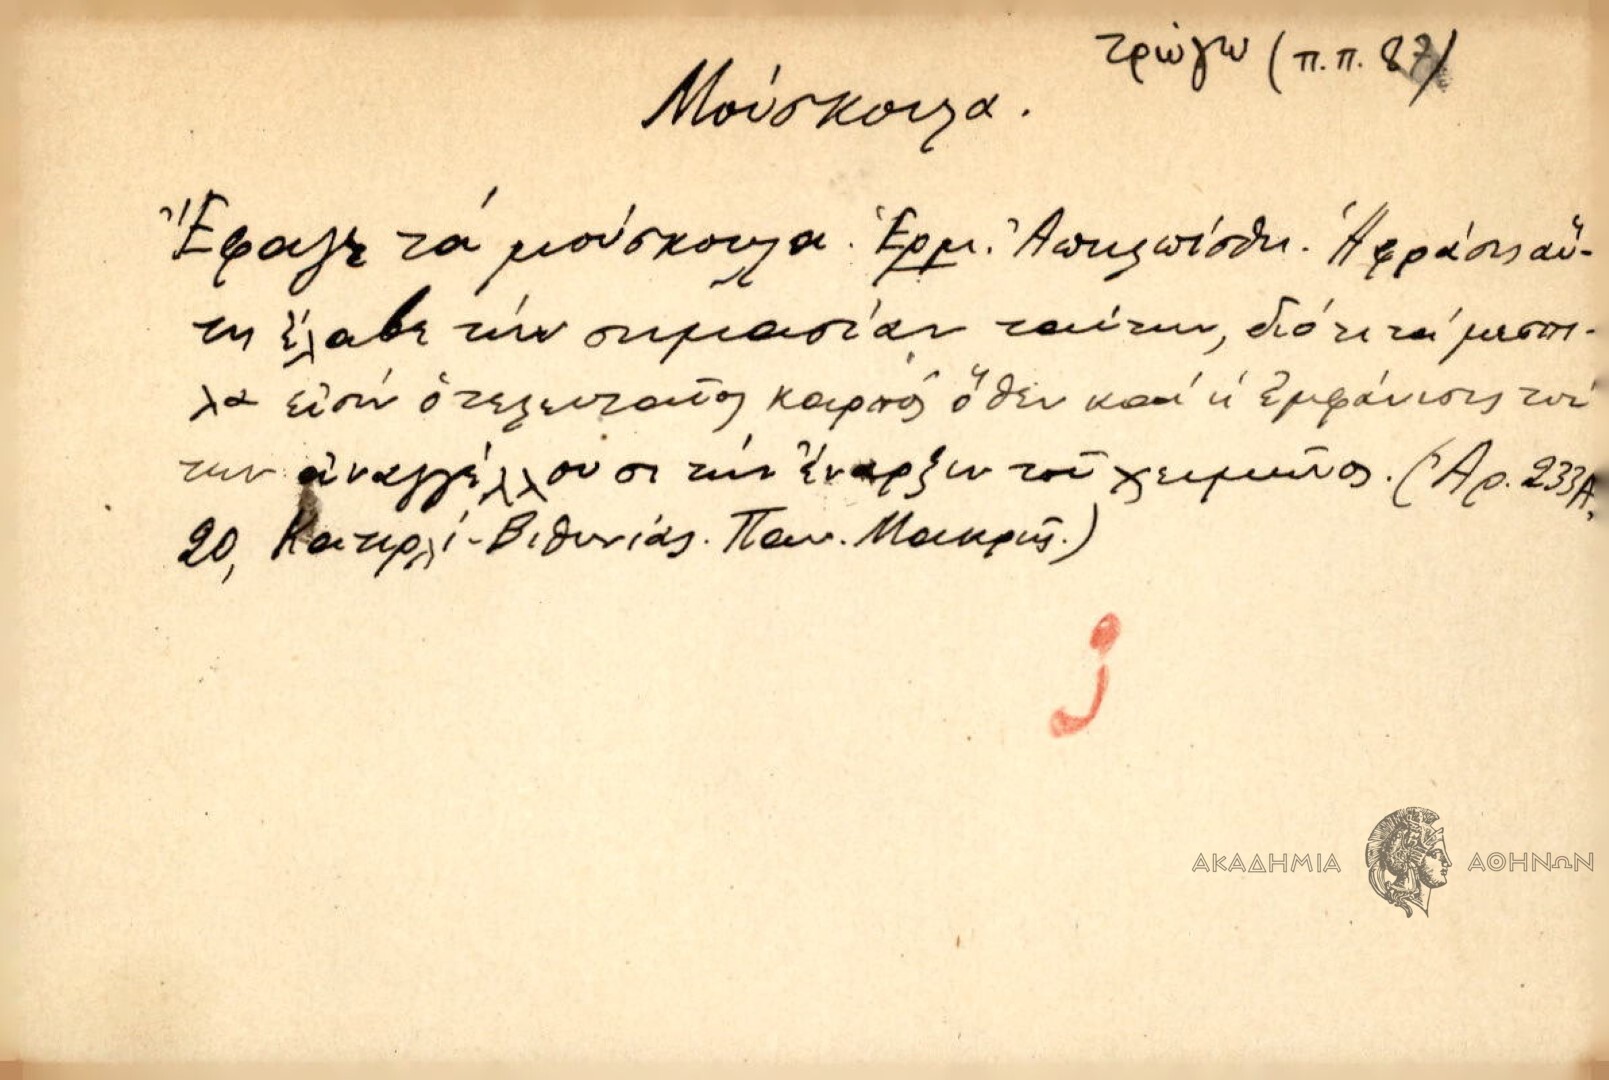 τρώγω (π.π. 87)
Μούσκουλα.
Ἔφαγε τά μούσκουλα. Ἑρμ. Ἀπηλπίσθη. Ἡ φράσις αὕ-
τη ἔλαβε τήν σημασίαν ταύτην, διότι τά μεσπι-
λα εἰσίν ὁ τελευταῖος καρπός ὅθεν καί ἡ ἐμφάνισις τού
των ἀναγγέλλουσι τήν ἔναρξιν τοῦ χειμῶνος. (Ἀρ. 233Α,
20, Κατιρλί-Βιθυνίας. Παν. Μακρῆς.)
ΑΚΑΔΗΜΙΑ ΑΘΗΝΩΝ